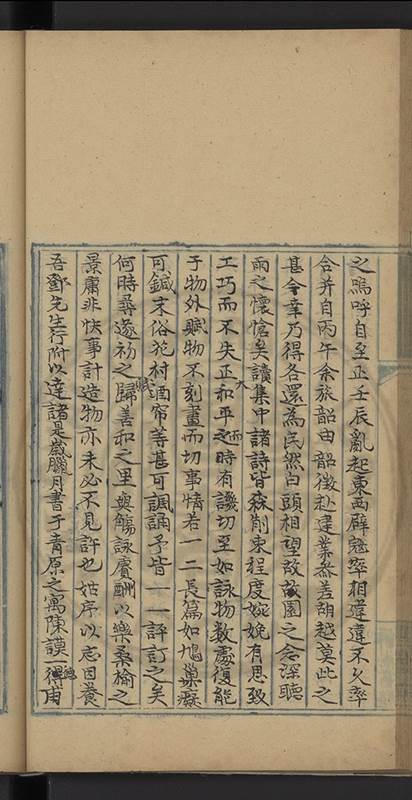 之嗚呼自至正壬辰亂起東西辟寇率相違違不久率
合并自丙午余旅韶由韶徵赴建業參差胡越莫此之
甚今幸乃得各還為民然白頭相望故園之念深聽
雨之懷愴矣讀集中諸詩皆森削束程度婉娩有思致
工巧而不失正大和平之而時有譏切至如詠物数處復能
于物外賦物不刻畫而切事情若一二長篇如鳩巢癡
可鍼末俗範村酒帘等甚可諷誦予皆一一評訂之矣
何時尋遂初之歸賦善和之里與觴詠賡酬以樂桑榆之
景庸非快事計造物亦未必不見許也姑序以志因養
吾鄧先生行附以達諸是歲臘月書于青原之寓陳謨一德甫